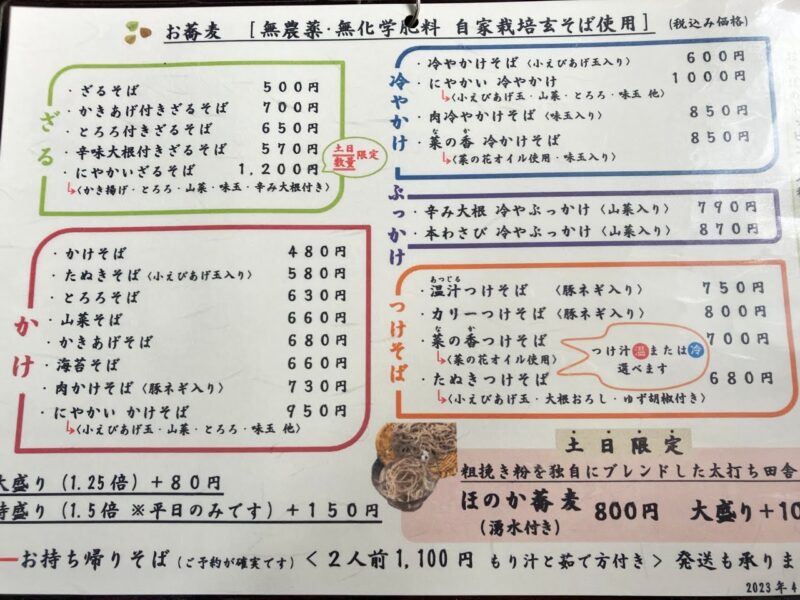 お蕎麦 [無農薬・無化学肥料 自家栽培玄そば使用] (税込み価格)
ざる
・ざるそば 500円
・かきあげ付きざるそば 700円
・とろろ付きざるそば 650円
・辛味大根付きざるそば 570円
・にやかいざるそば 1,200円
↳〈かき揚げ・とろろ・山菜・味玉・辛み大根付き〉
土日数量限定
かけ
・かけそば 480円
・たぬきそば〈小えびあげ玉入り〉 580円
・とろろそば 630円
・山菜そば 660円
・かきあげそば 680円
・海苔そば 660円
・肉かけそば〈豚ネギ入り〉 730円
・にやかい かけそば 950円
↳〈小えびあげ玉・山菜・とろろ・味玉 他〉
冷やかけ
・冷やかけそば〈小えびあげ玉入り〉 600円
・にやかい 冷やかけ 1000円
↳〈小えびあげ玉・山菜・とろろ・味玉 他〉
・肉冷やかけそば〈味玉入り〉 850円
・菜の香 冷かけそば 850円
な か
↳〈菜の花オイル使用・味玉入り〉
ぶっかけ
・辛み大根 冷やぶっかけ〈山菜入り〉 790円
・本わさび 冷やぶっかけ〈山菜入り〉 870円
つけそば
あつじる
・温汁つけそば 〈豚ネギ入り〉 750円
・カリーつけそば〈豚ネギ入り〉 800円
な か
・菜の香つけそば 700円
↳〈菜の花オイル使用〉
つけ汁温または冷
選べます
・たぬきつけそば 680円
↳〈小えびあげ玉・大根おろし・ゆず胡椒付き〉
大盛り(1.25倍)+80円
特盛り(1.5倍 ※平日のみです)+150円
土日限定
粗挽き粉を独自にブレンドした太打ち田舎
ほのか蕎麦 800円 大盛り+10
(湧水付き)
お持ち帰りそば(ご予約が確実です)<2人前1,100円 もり汁と茹で方付き> 発送も承りま
2023年4